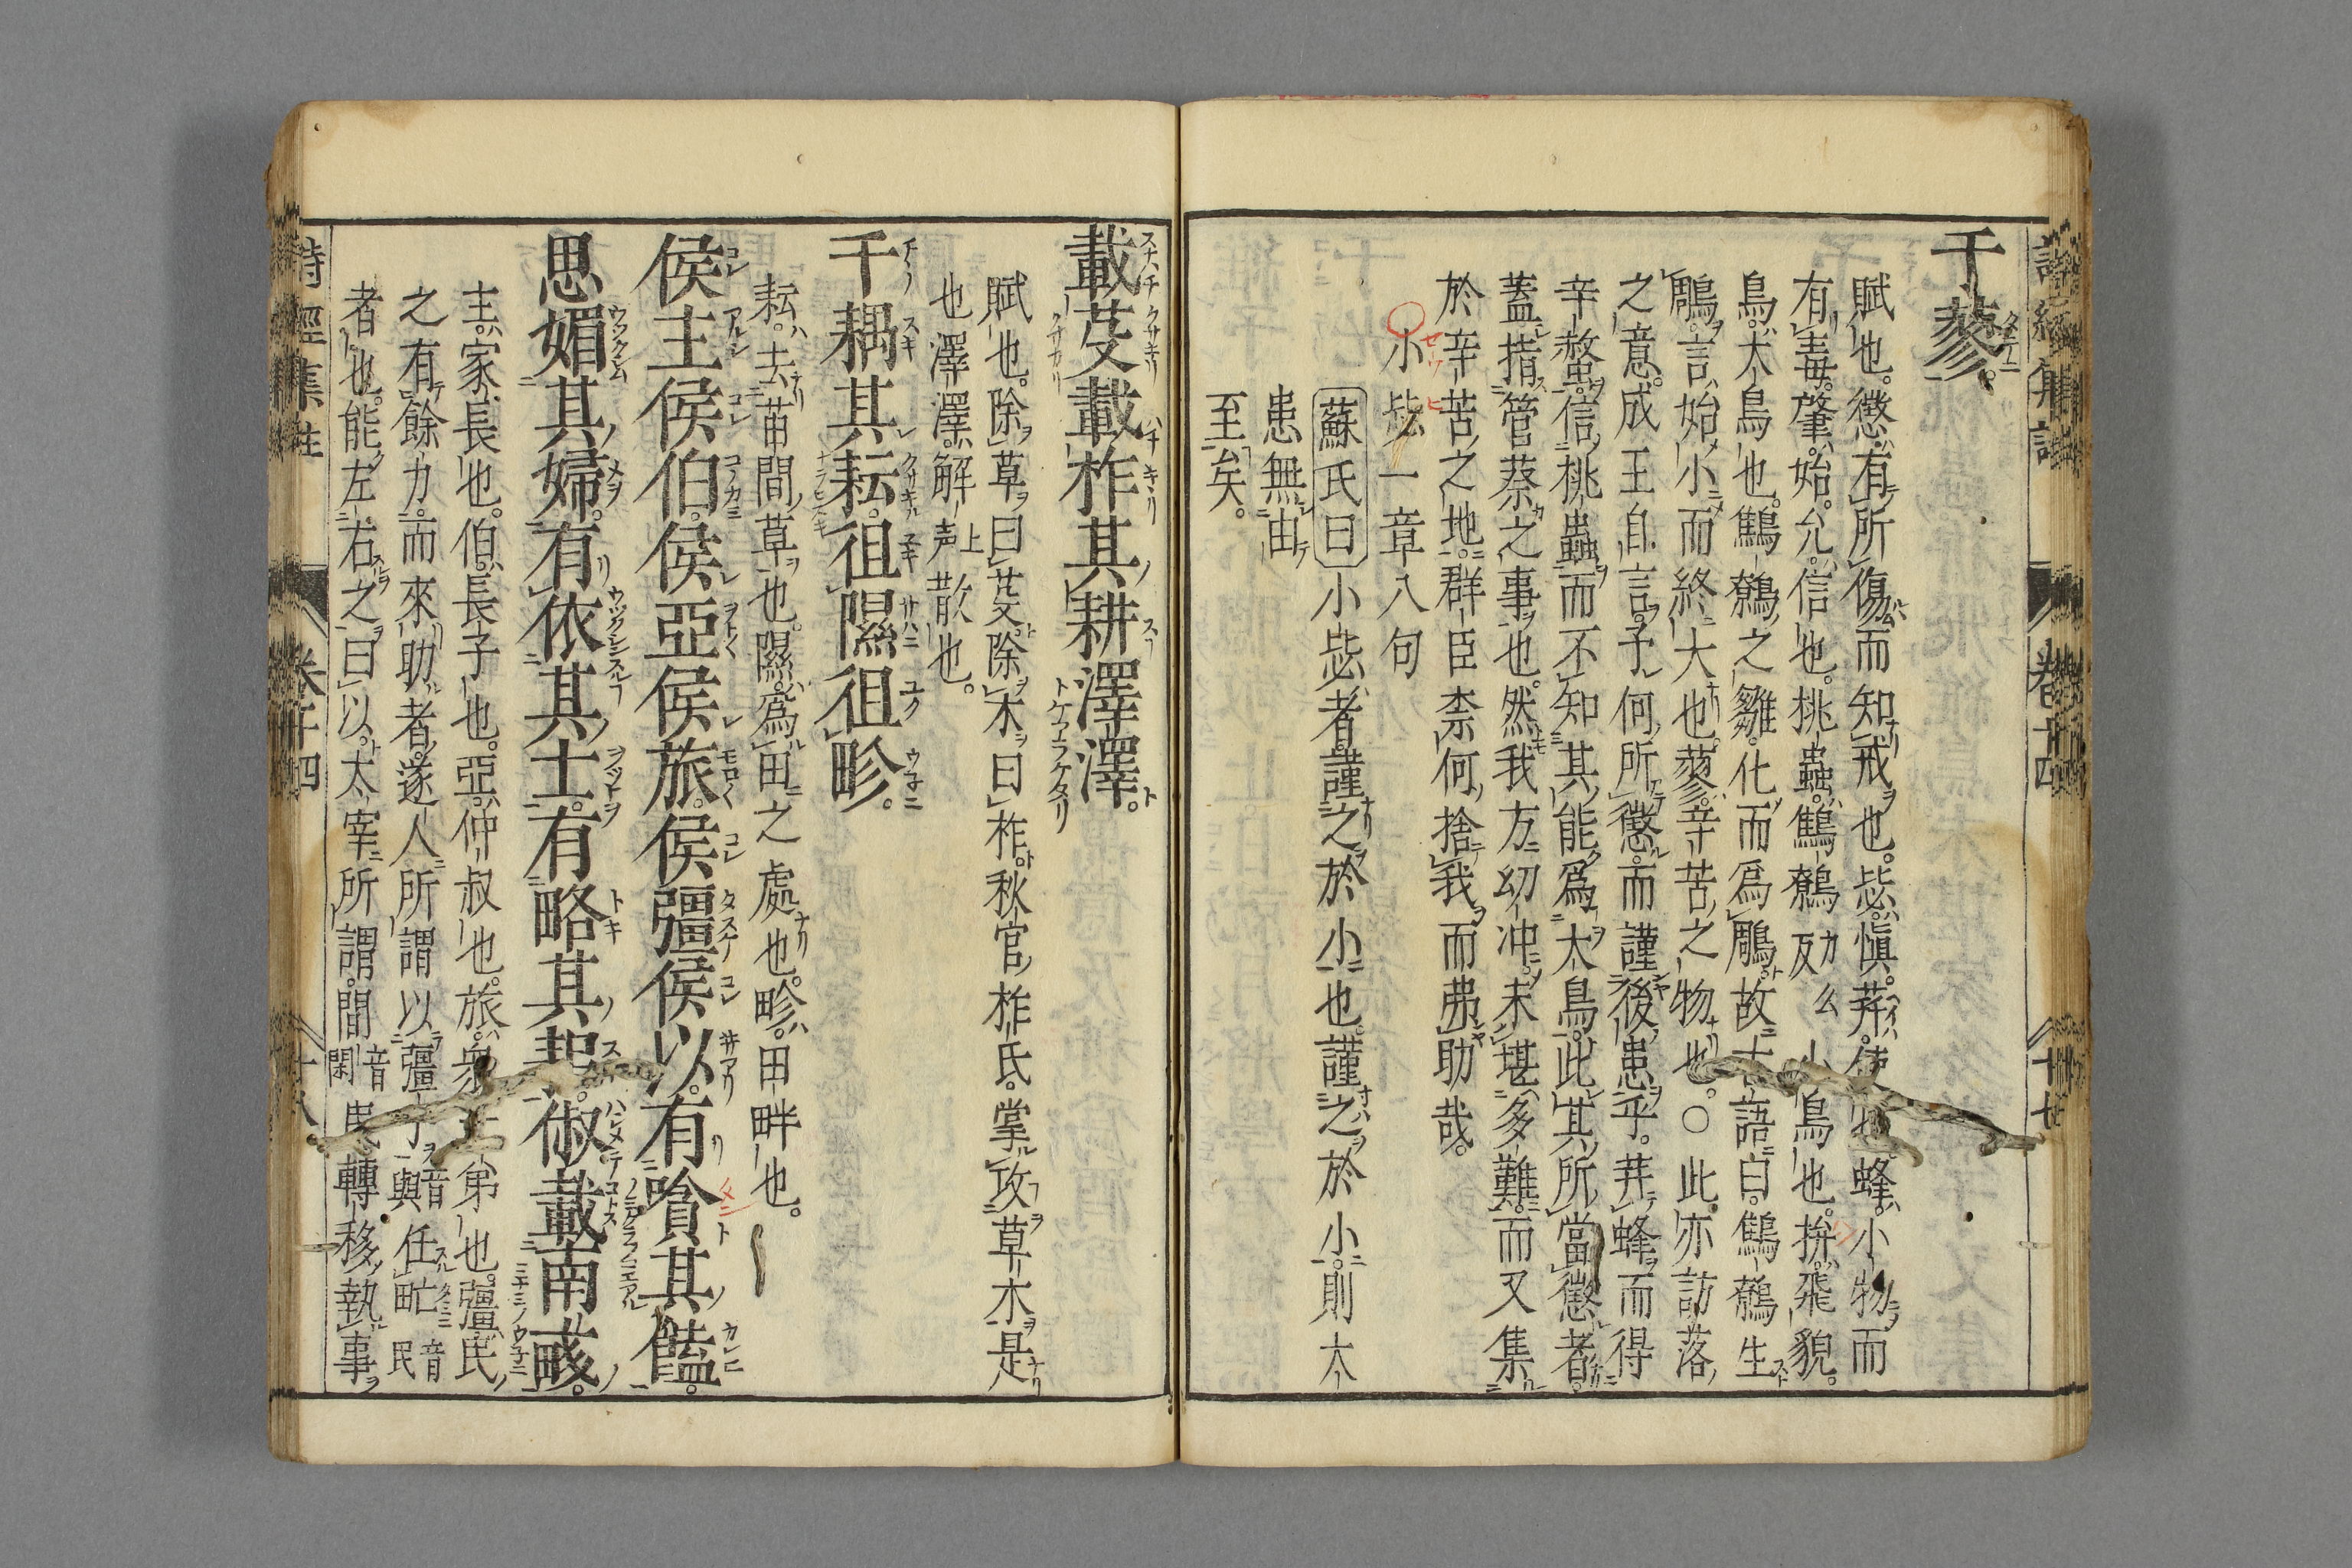 于蓼。
賦也。懲。有所傷而知戒也。毖。愼。荓。使也。蜂。小物而
有毒。肇。始。允。信也。桃蟲。鷦鷯。小鳥也。拚。飛貌。
鳥。大鳥也。鷦鷯之雛。化而爲鵰。故古語曰。鷦鷯生
鵰。言始小而終大也。蓼。辛苦之物也。○此亦訪落
之意。成王自言。予何所懲。而謹後患乎。荓蜂而得
辛螫。信桃蟲而不知其能爲大鳥。此其所當懲者。
蓋指管蔡之事也。然我方幼冲。未堪多難。而又集
於辛苦之地。群臣柰何捨我而弗助哉。
小毖一章八句
蘇氏曰小毖者。謹之於小也。謹之於小。則大
患無由
至矣。
載芟載柞其耕澤澤。
賦也。除草曰芟。除木曰柞。秋官柞氏。掌攻草木是
也。澤澤。解散也。
千耦其耘。徂隰徂畛。
耘。去苗間草也。隰。爲田之處也。畛。田畔也。
侯主侯伯。侯亞侯旅。侯彊侯以。有嗿其饁。
思媚其婦。有依其士。有略其耜。俶載南畝。
主。家長也。伯。長子也。亞。仲叔也。旅。衆子弟也。彊。民
之有餘力。而來助者。遂人所謂以彊予任甿
者也。能左右之曰以。太宰所謂。間民轉移執事
詩經集註
卷十四
十八